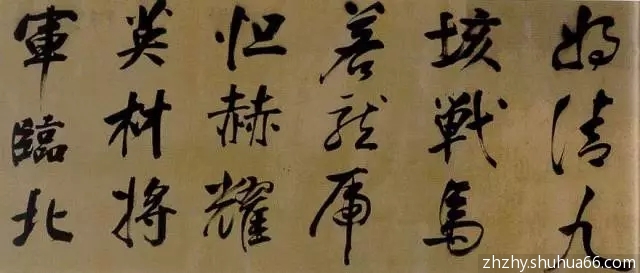 将清九
垓戰馬
若龍虎
怛赫耀
英材将
軍臨北
zhzhy.shuhua66.com